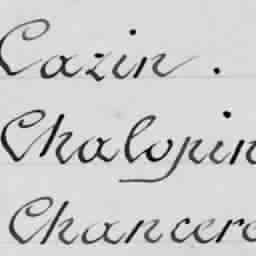 Cazin.
Chalopin
Chancere